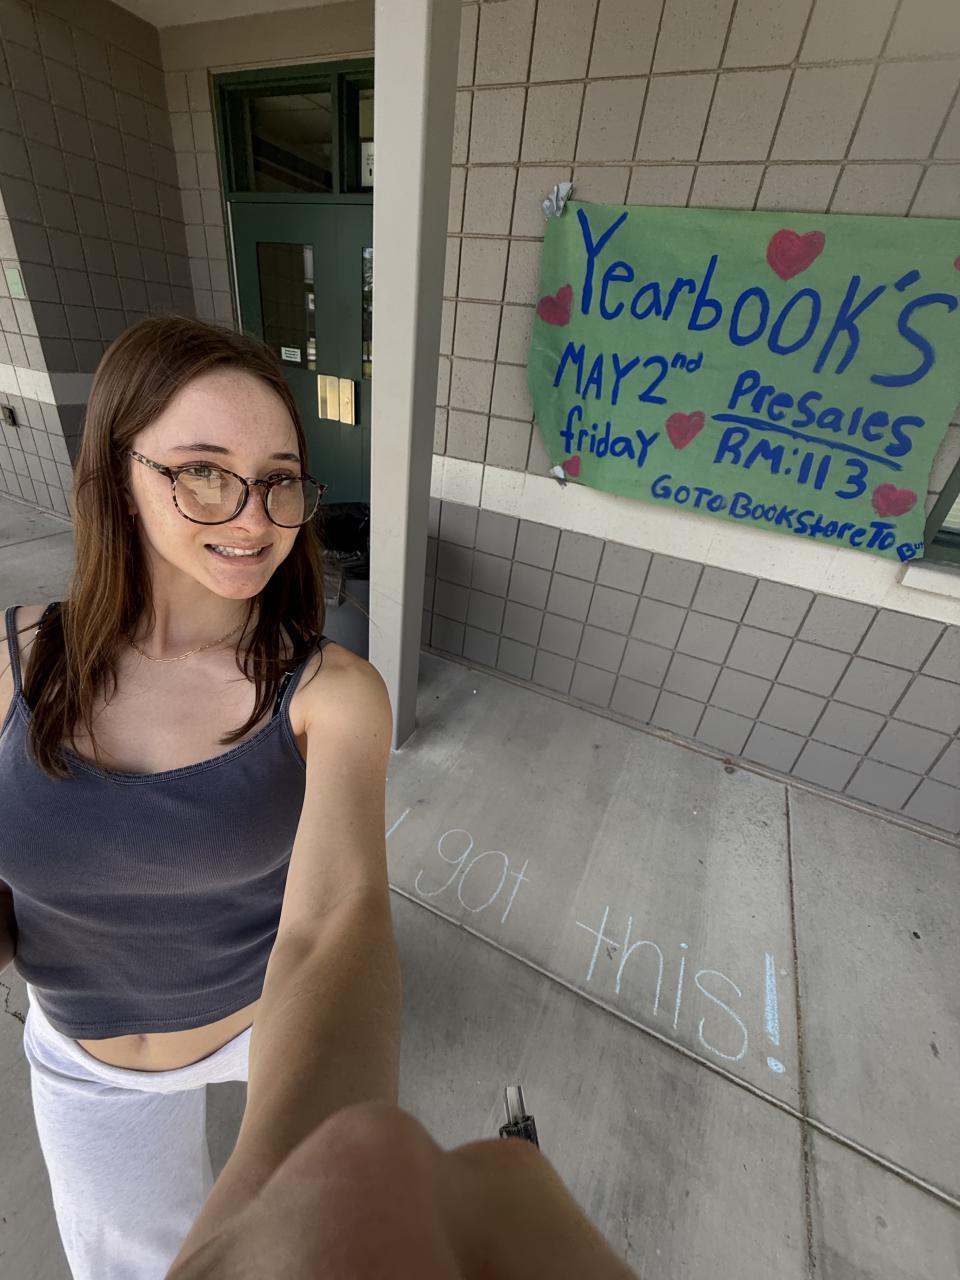 YearbOOK'S
MAY 2nd
friday
PreSales
RM:113
GOTO BOOKStore TO
BUY
got
this!